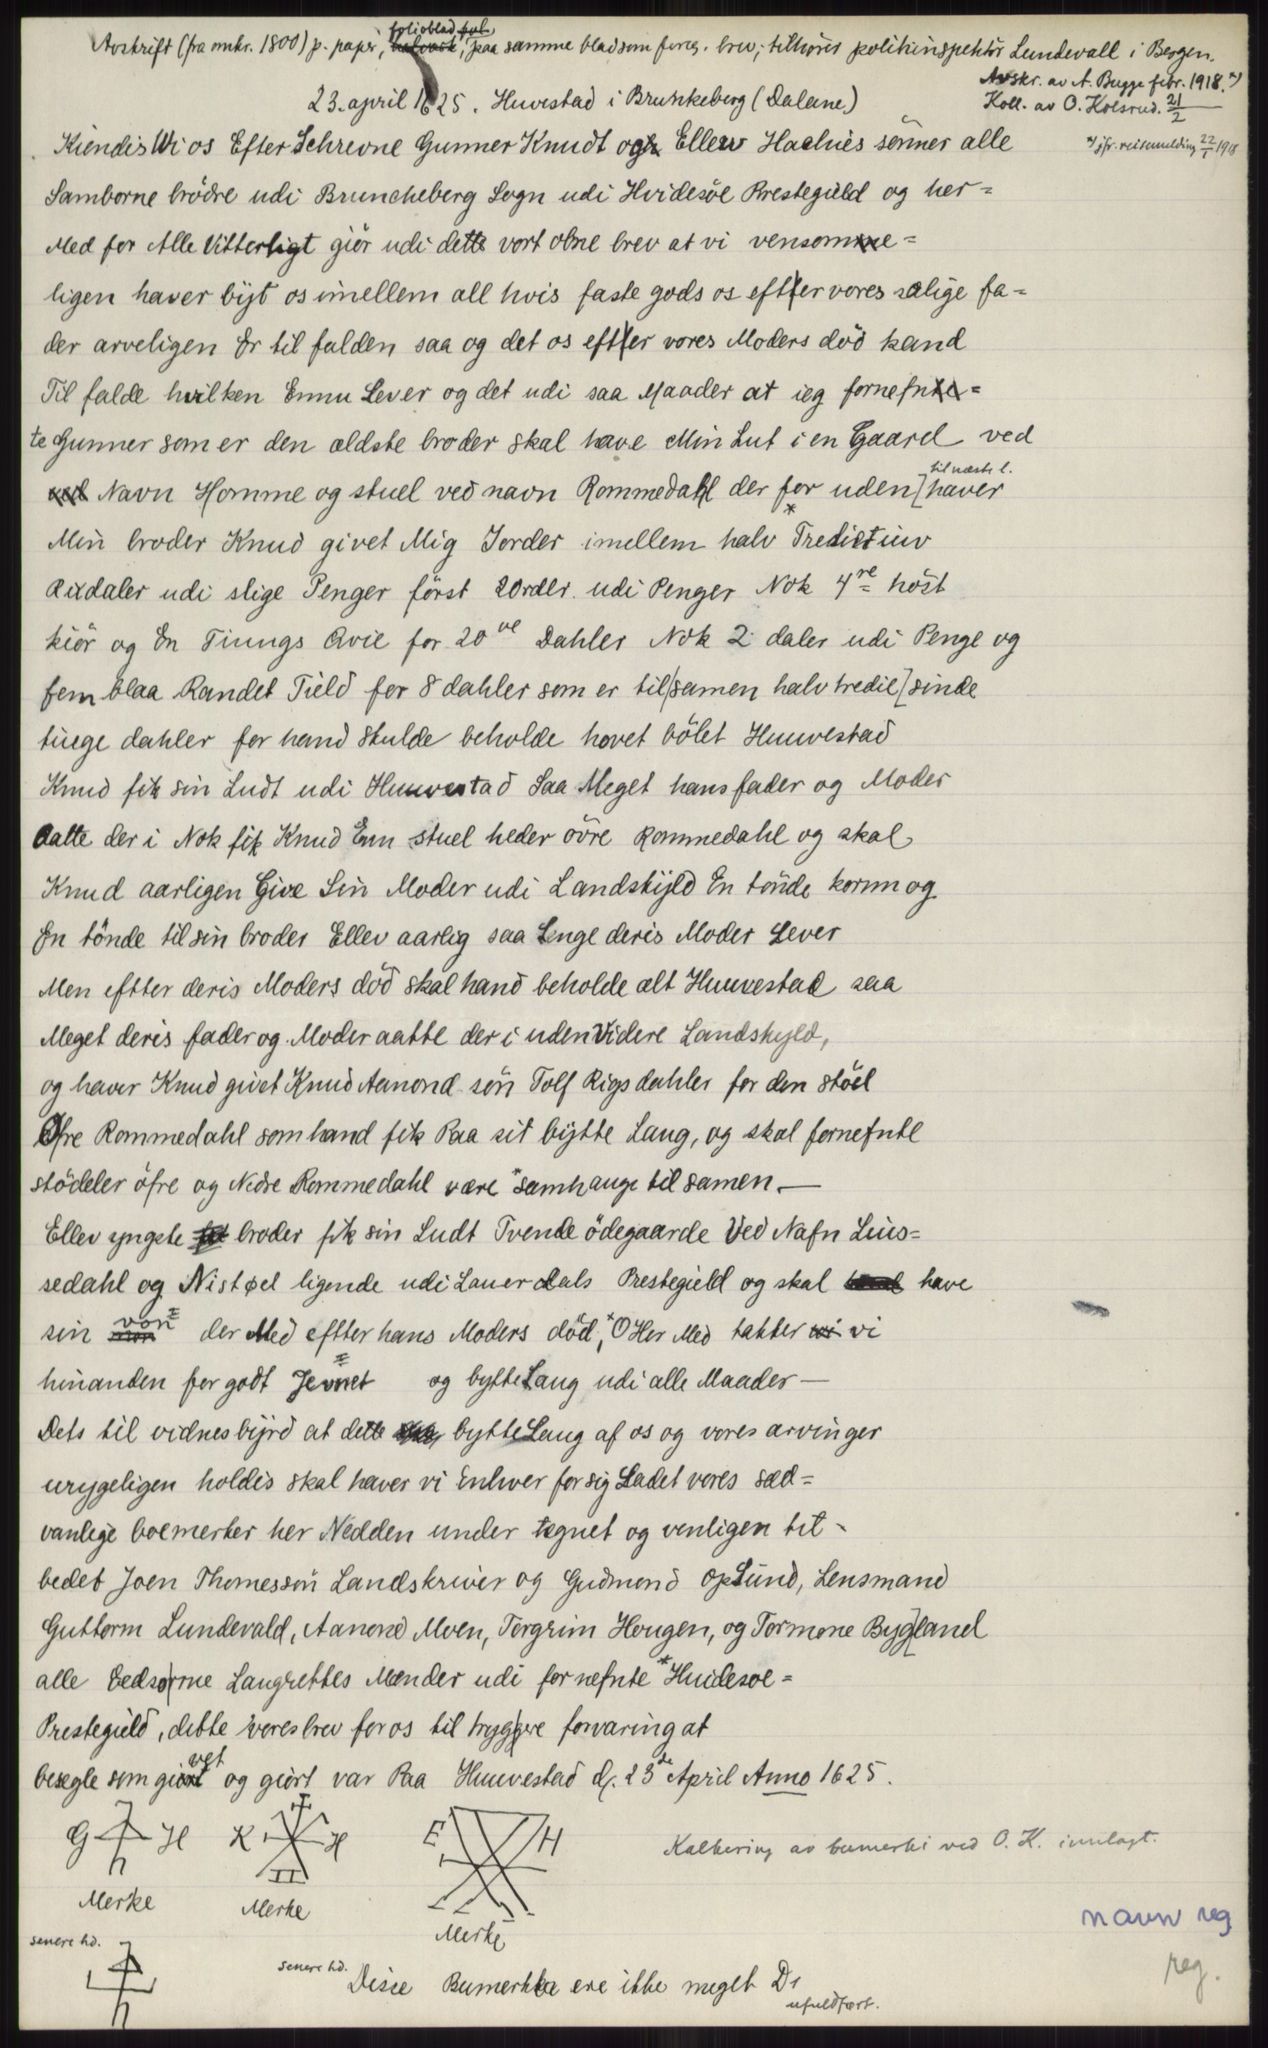 Avskrift (fra omkr. 1800) p. papir, folioblad, paa samme blad som foreg. brev; tilhører politiinspektör Lundevall i Bergen.
Avskr. av A. Bugge febr. 1918. *)
23. april 1625. Huvestad i Brunkeberg (Dalane)
Koll. av O. Kolsrud. 21/2
*) jfr. reisemelding 22/1 1918
Kiendis Wi os Efter Schrevne Gunner Knudt og Ellew Hachnés sönner alle
Samborne brödre udi Bruncheberg Sogn udi Hvidesöe Prestegield og her=
Med for Alle Vitterligt giör udi dette vort obne brev at vi vensomme=
ligen haver bijt os imellem all hvis faste gods os eftter vores salige fa=
der arveligen Er til falden saa og det os eftter vores Moders död kand
Til falde hvilken Ennu Lever og det udi saa Maader at ieg fornefn=
te Gunner som er den ældste broder skal have Min Lut i en Gaard ved
Navn Homme og stuel ved navn Rommedahl der for uden [haver
til næste l.
Min broder Knud givet Mig Jorder imellem halv *Tredietiuv
Rixdaler udi slige Penger först 20rdlr. udi Penger Nok 4re höst
kiör og En Tiungs Qvie for 20ve Dahler Nok 2 daler udi Penge og
fem blaa Randet Tield for 8 dahler som er til samen halv tredie sinde
tiuge dahler for hand skulde beholde hovet bölet Huuvestad
Knud fik sin Ludt udi Huuvestad Saa Meget hans fader og Moder
Aatte der i Nok fik Knud Enn stuel heder övre Rommedahl og skal
Knud aarligen Give Sin Moder udi Landskijld En tönde kornn og
En tönde til sin broder Ellev aarlig saa Lenge deris Moder Lever
Men eftter deris Moders död skal hand beholde alt Huuvestad saa
Meget deris fader og Moder aatte der i uden Videre Landskyld,
og haver Knud givet Knud Aanond sön Tolf Rigsdahler for den stöel
Øfre Rommedahl som hand fik Paa sit bijtte Laug, og skal fornefnte
stödeler öfre og Nedre Rommedahl være *samhauge til samen.—
Ellev yngste broder fik sin Ludt Tvende ödegaarde Ved Nafn Lius=
sedahl og Nistøel ligende udi Lauerdals Prestegield og skal have
sin von der Med eftter hans Moders död, *O Her Med takter vi
hinanden for godt Jevnet og bytte Laug udi alle Maader —
Dets til vidnesbijrd at dette bytte Laug af os og vores arvinger
urygeligen holdis skal haver vi Enhver for sig Ladet vores sæd=
vanlige boemerker her Nedden under tegnet og venligen til-
bedet Joen Thomessön Landskriver og Gudmond Opsund, Lensmand
Guttorm Lundevald, Aanond Moen, Torgrim Hougen, og Tormone Bygland
alle Eedsorne Laugrettes Mænder udi fornefnte *Huidesoe=
Prestegield, dette vores brev for os til tryggere forvaring at
besegle som giort og giort var Paa Huuvestad d. 23de April Anno 1625.
G H K H E H
Kalkering av bumerki ved O. K. innlagt.
Merke Merke Merke
navn reg
reg.
senere hd.
senere hd. Disse Bumerkke ere ikke meget D1
ufuldført.